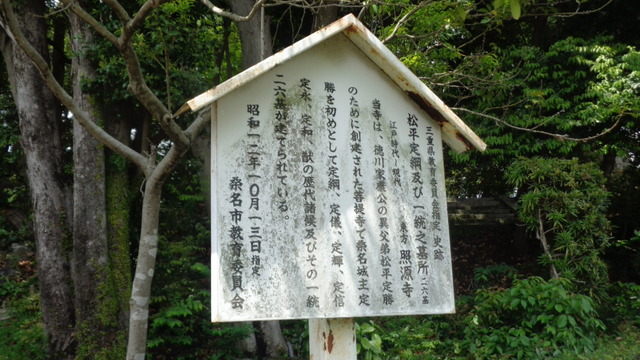 三重県教育委員会指定 史跡
松平定綱及び一統之墓所 二六基
江戸時代〜現代 東方 照源寺
当寺は、徳川家康公の異父弟松平定勝
のために創建された菩提寺で桑名城主定
勝を初めとして定綱、定儀、定輝、定信
定永、定和、猷の歴代諸侯及びその一統
二六基が建てられている。
昭和一二年一〇月一三日指定
桑名市教育委員会